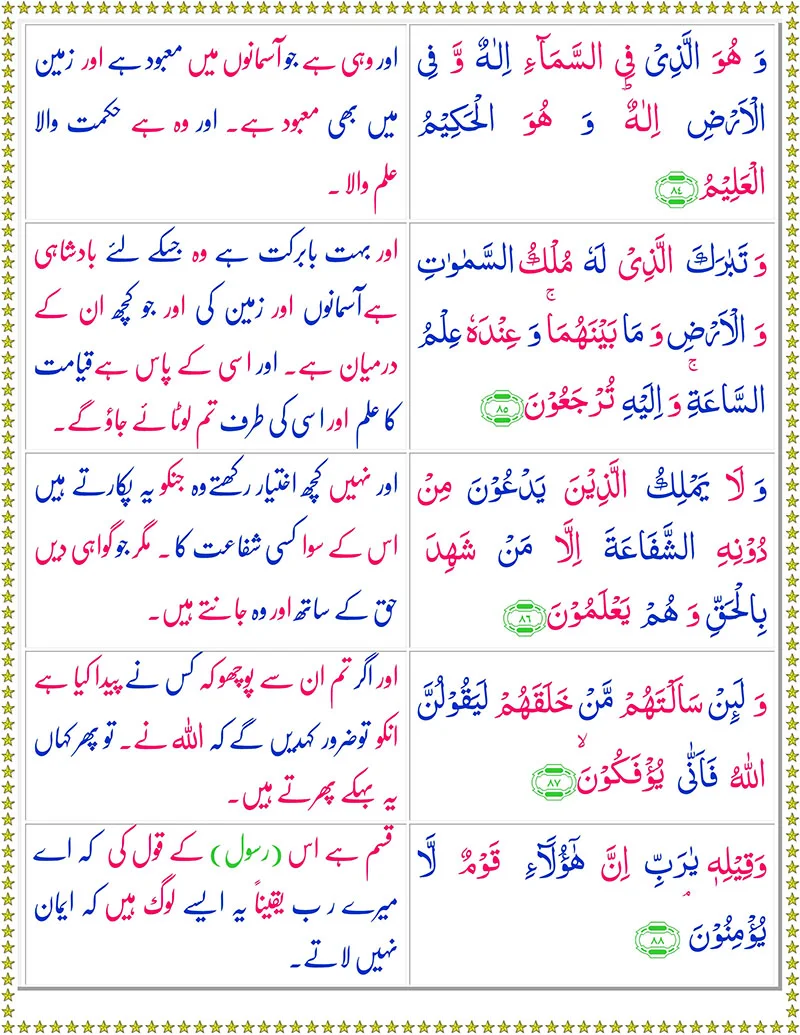 وَ هُوَ الَّذِیْ فِی السَّمَآءِ اِلٰهٌ وَّ فِی
الْاَرْضِ اِلٰهٌؕ وَ هُوَ الْحَكِیْمُ
الْعَلِیْمُ ۸۴
اور وہی ہے جو آسمانوں میں معبود ہے اور زمین
میں بھی معبود ہے۔ اور وہ ہے حکمت والا
علم والا ۔
وَ تَبٰرَكَ الَّذِیْ لَهٗ مُلْكُ السَّمٰوٰتِ
وَ الْاَرْضِ وَ مَا بَیْنَهُمَاۚ وَ عِنْدَهٗ عِلْمُ
السَّاعَةِۚ وَ اِلَیْهِ تُرْجَعُوْنَ ۸۵
اور بہت بابرکت ہے وہ جسکے لئے بادشاہی
ہے آسمانوں اور زمین کی اور جو کچھ ان کے
درمیان ہے۔ اور اسی کے پاس ہے قیامت
کا علم اور اسی کی طرف تم لوٹائے جاؤ گے۔
وَ لَا یَمْلِكُ الَّذِیْنَ یَدْعُوْنَ مِنْ
دُوْنِهِ الشَّفَاعَةَ اِلَّا مَنْ شَهِدَ
بِالْحَقِّ وَ هُمْ یَعْلَمُوْنَ ۸۶
اور نہیں کچھ اختیار رکھتے وہ جنکو یہ پکارتے ہیں
اس کے سوا کسی شفاعت کا۔ مگر جو گواہی دیں
حق کے ساتھ اور وہ جانتے ہیں۔
وَ لَىِٕنْ سَاَلْتَهُمْ مَّنْ خَلَقَهُمْ لَیَقُوْلُنَّ
اللّٰهُ فَاَنّٰى یُؤْفَكُوْنَۙ ۸۷
اور اگر تم ان سے پوچھو کہ کس نے پیدا کیا ہے
انکو تو ضرور کہدیں گے کہ اللہ نے۔ تو پھر کہاں
یہ بہکے پھرتے ہیں۔
وَقِیْلِهٖ یٰرَبِّ اِنَّ هٰۤؤُلَآءِ قَوْمٌ لَّا
یُؤْمِنُوْنَۘ ۸۸
قسم ہے اس (رسول) کے قول کی کہ اے
میرے رب یقیناً یہ ایسے لوگ ہیں کہ ایمان
نہیں لاتے۔